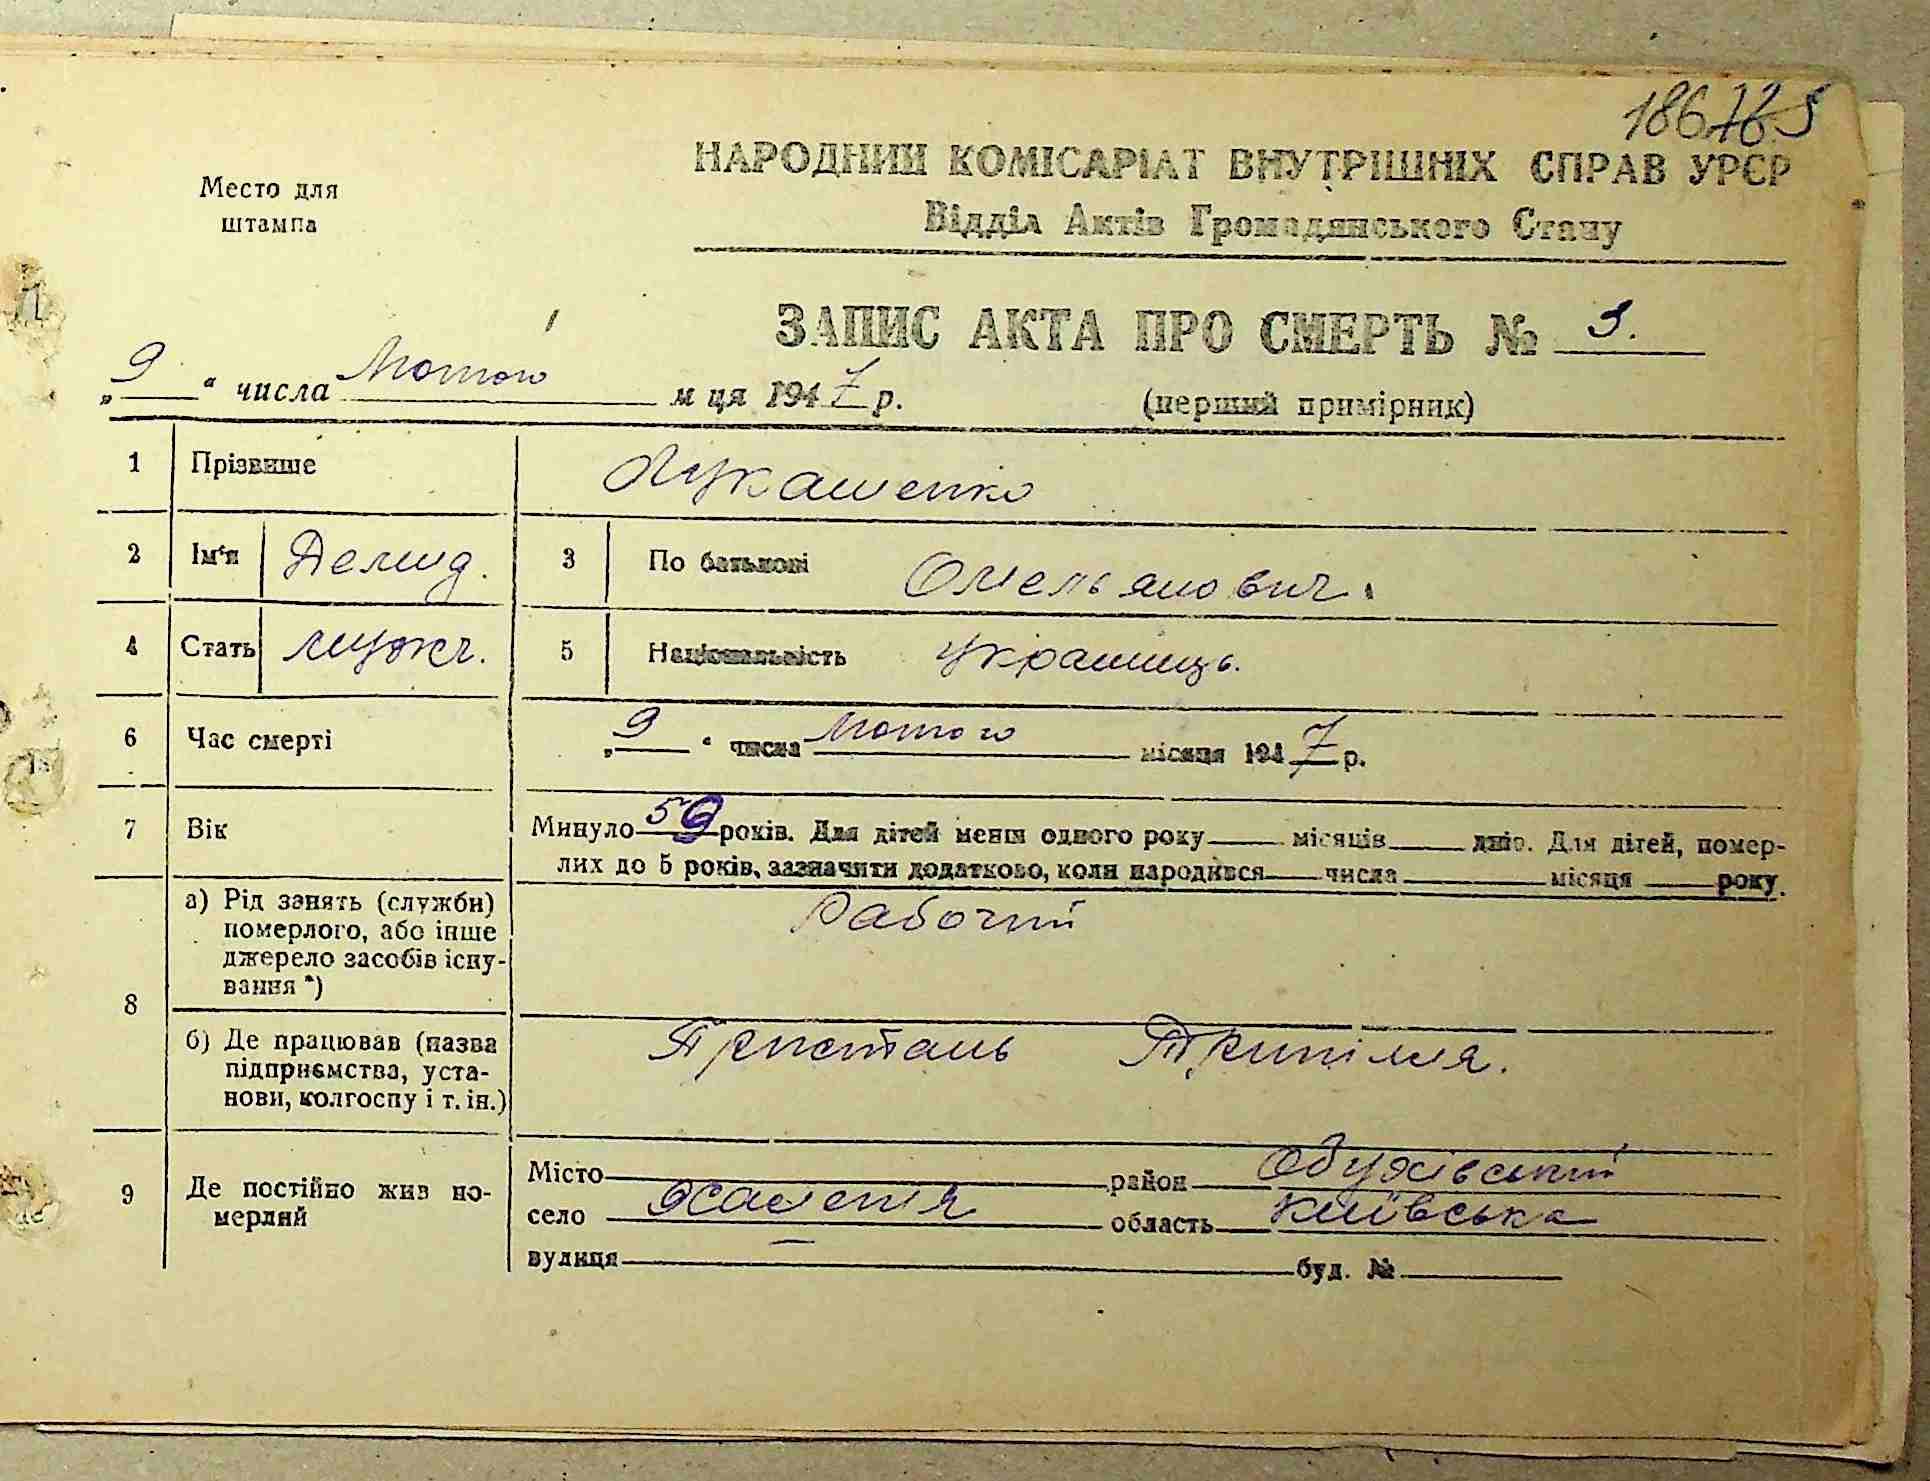 186
НАРОДНИЙ КОМІСАРІАТ ВНУТРІШНІХ СПРАВ УРСР
Відділ Актів Громадянського Стану
Место для
штампа
ЗАПИС АКТА ПРО СМЕРТЬ № 3.
„ 9 “ числа Лютого м ця 1947 р.
(перший примірник)
1 Прізвище Лукашенко
2 Ім'я Демид. 3 По батькові Омельянович.
4 Стать мужч. 5 Національність Українець.
6 Час смерті „ 9 “ числа Лютого місяця 1947 р.
7 Вік Минуло 59 років. Для дітей менш одного року місяців днів. Для дітей, помер-
лих до 5 років, зазначити додатково, коли народився числа місяця року.
8 а) Рід занять (служби)
померлого, або інше
джерело засобів існу-
вання *)
Рабочий
б) Де працював (назва
підприємства, уста-
нови, колгоспу і т. ін.)
Пристань Трипілля.
9 Де постійно жив по-
мерлий
Місто район Обухівський
село Жалення область Київська
вулиця — буд. №